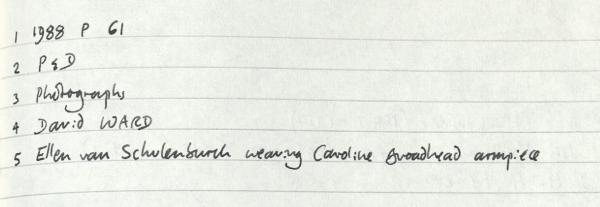 1 1988 P 61
2 P&D
3 Photographs
4 David WARD
5 Ellen van Schulenburch wearing Caroline Broadhead armpiece